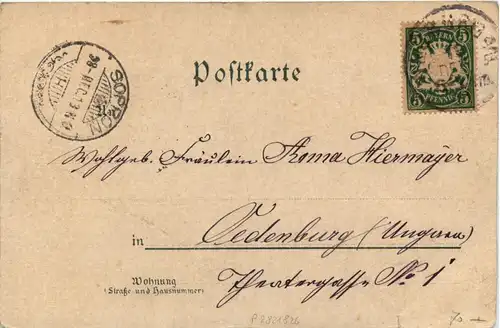 BAYERN
5 5
PFENNIG
5 5
SOPRON
98 DEC 13
Postkarte
An
Wohlgeb. Fräulein Roma Hiermayer
in Oedenburg (Ungarn)
Wohnung
(Straße und Hausnummer)
Theatergasse No 1